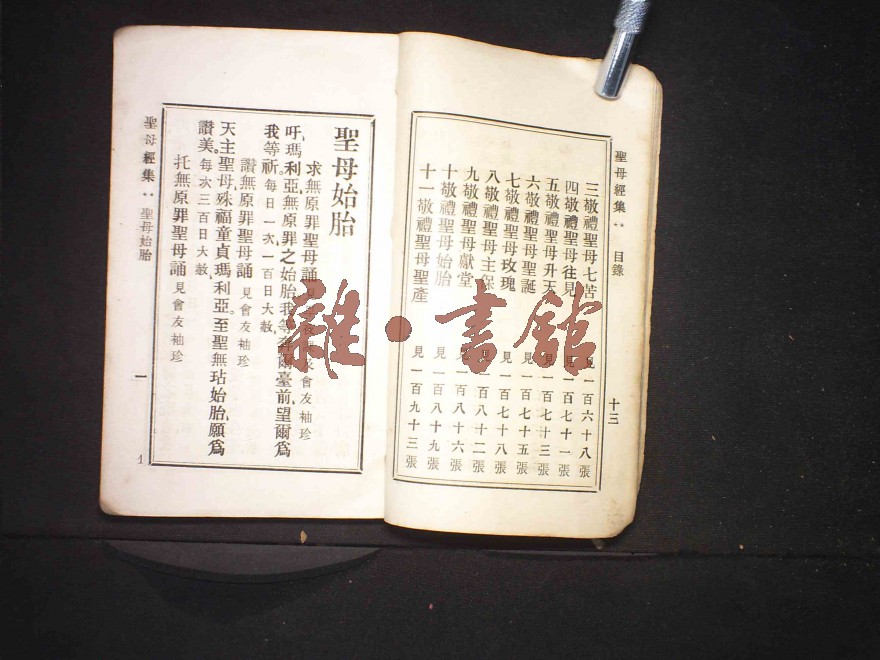 聖母經集 目錄
十三
三敬禮聖母七苦 見一百六十八張
四敬禮聖母往見 見一百七十一張
五敬禮聖母升天 見一百七十三張
六敬禮聖母聖誕 見一百七十五張
七敬禮聖母玫瑰 見一百七十八張
八敬禮聖母主保 見一百八十二張
九敬禮聖母獻堂 見一百八十六張
十敬禮聖母始胎 見一百八十九張
十一敬禮聖母聖產 見一百九十三張
聖母始胎
求無原罪聖母誦 會友袖珍
吁、瑪利亞、無原罪之始胎、我等 爾臺前、望爾爲
我等祈。每日一次、一百日大赦、
讚無原罪聖母誦 見會友袖珍
天主聖母、殊福童貞瑪利亞、至聖無玷始胎、願爲
讚美。每次三百日大赦、
托無原罪聖母誦 見會友袖珍
聖母經集 聖母始胎
一
1
雜·書館